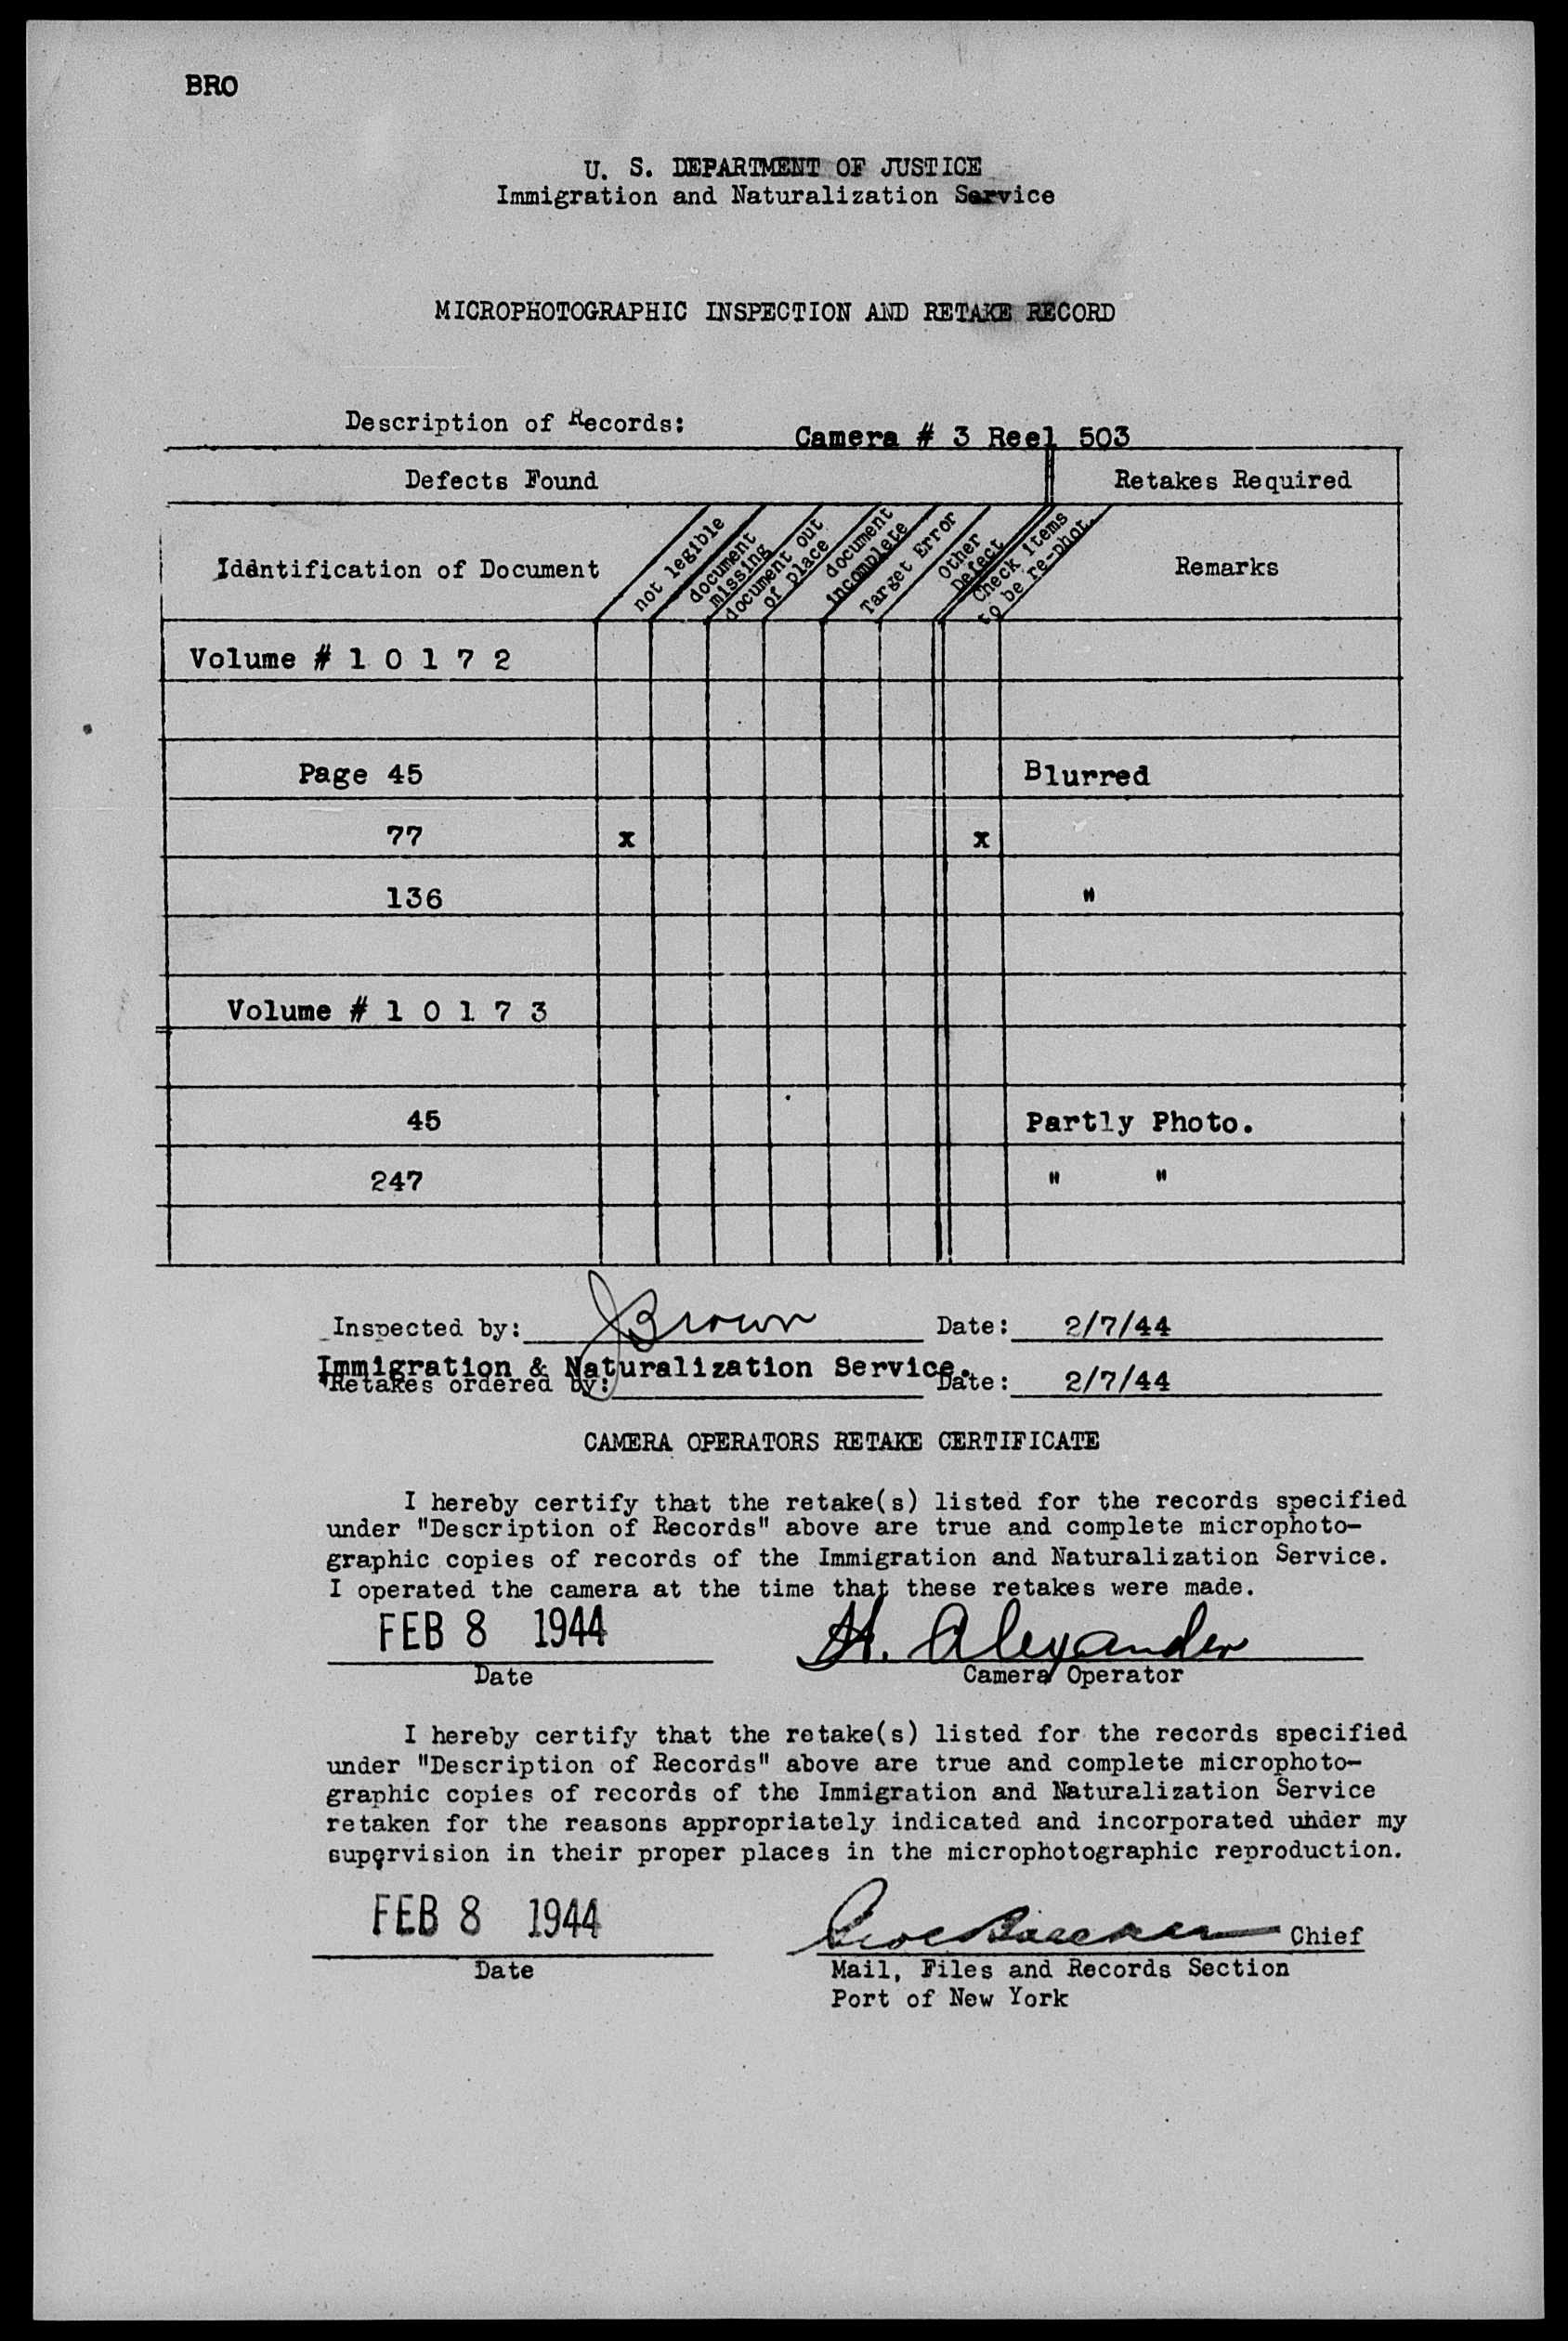 BRO
U. S. DEPARTMENT OF JUSTICE
Immigration and Naturalization Service
MICROPHOTOGRAPHIC INSPECTION AND RETAKE RECORD
Description of Records: Camera # 3 Reel 503
Defects Found Retakes Required
Identification of Document
not legible
document missing
document out of place
document incomplete
Target Error
Other Defect
Check items to be re-phot.
Remarks
Volume # 1 0 1 7 2
Page 45 Blurred
77 x x
136 "
Volume # 1 0 1 7 3
45 Partly Photo.
247 " "
Inspected by: J Brown Date: 2/7/44
Immigration & Naturalization Service.
Retakes ordered by: Date: 2/7/44
CAMERA OPERATORS RETAKE CERTIFICATE
I hereby certify that the retake(s) listed for the records specified
under "Description of Records" above are true and complete microphoto-
graphic copies of records of the Immigration and Naturalization Service.
I operated the camera at the time that these retakes were made.
FEB 8 1944 H. Alexander
Date Camera Operator
I hereby certify that the retake(s) listed for the records specified
under "Description of Records" above are true and complete microphoto-
graphic copies of records of the Immigration and Naturalization Service
retaken for the reasons appropriately indicated and incorporated under my
supervision in their proper places in the microphotographic reproduction.
FEB 8 1944 Chief
Date Mail, Files and Records Section
Port of New York